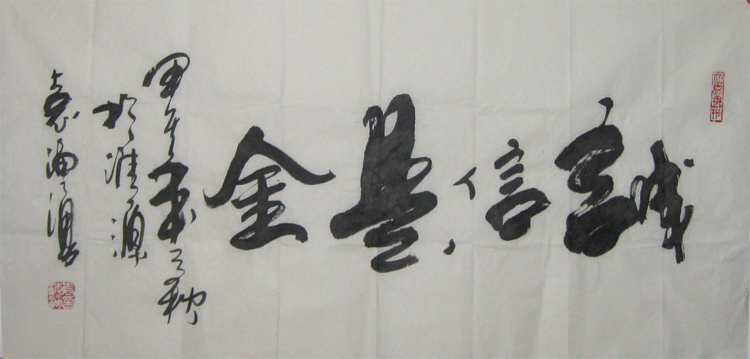 誠信是金
甲午年之秋
於淮源
袁